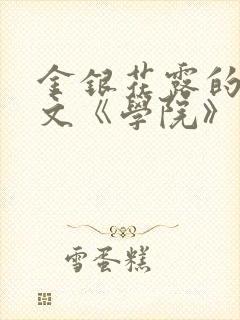 金銀花露的
文《學院》
雪蛋糕